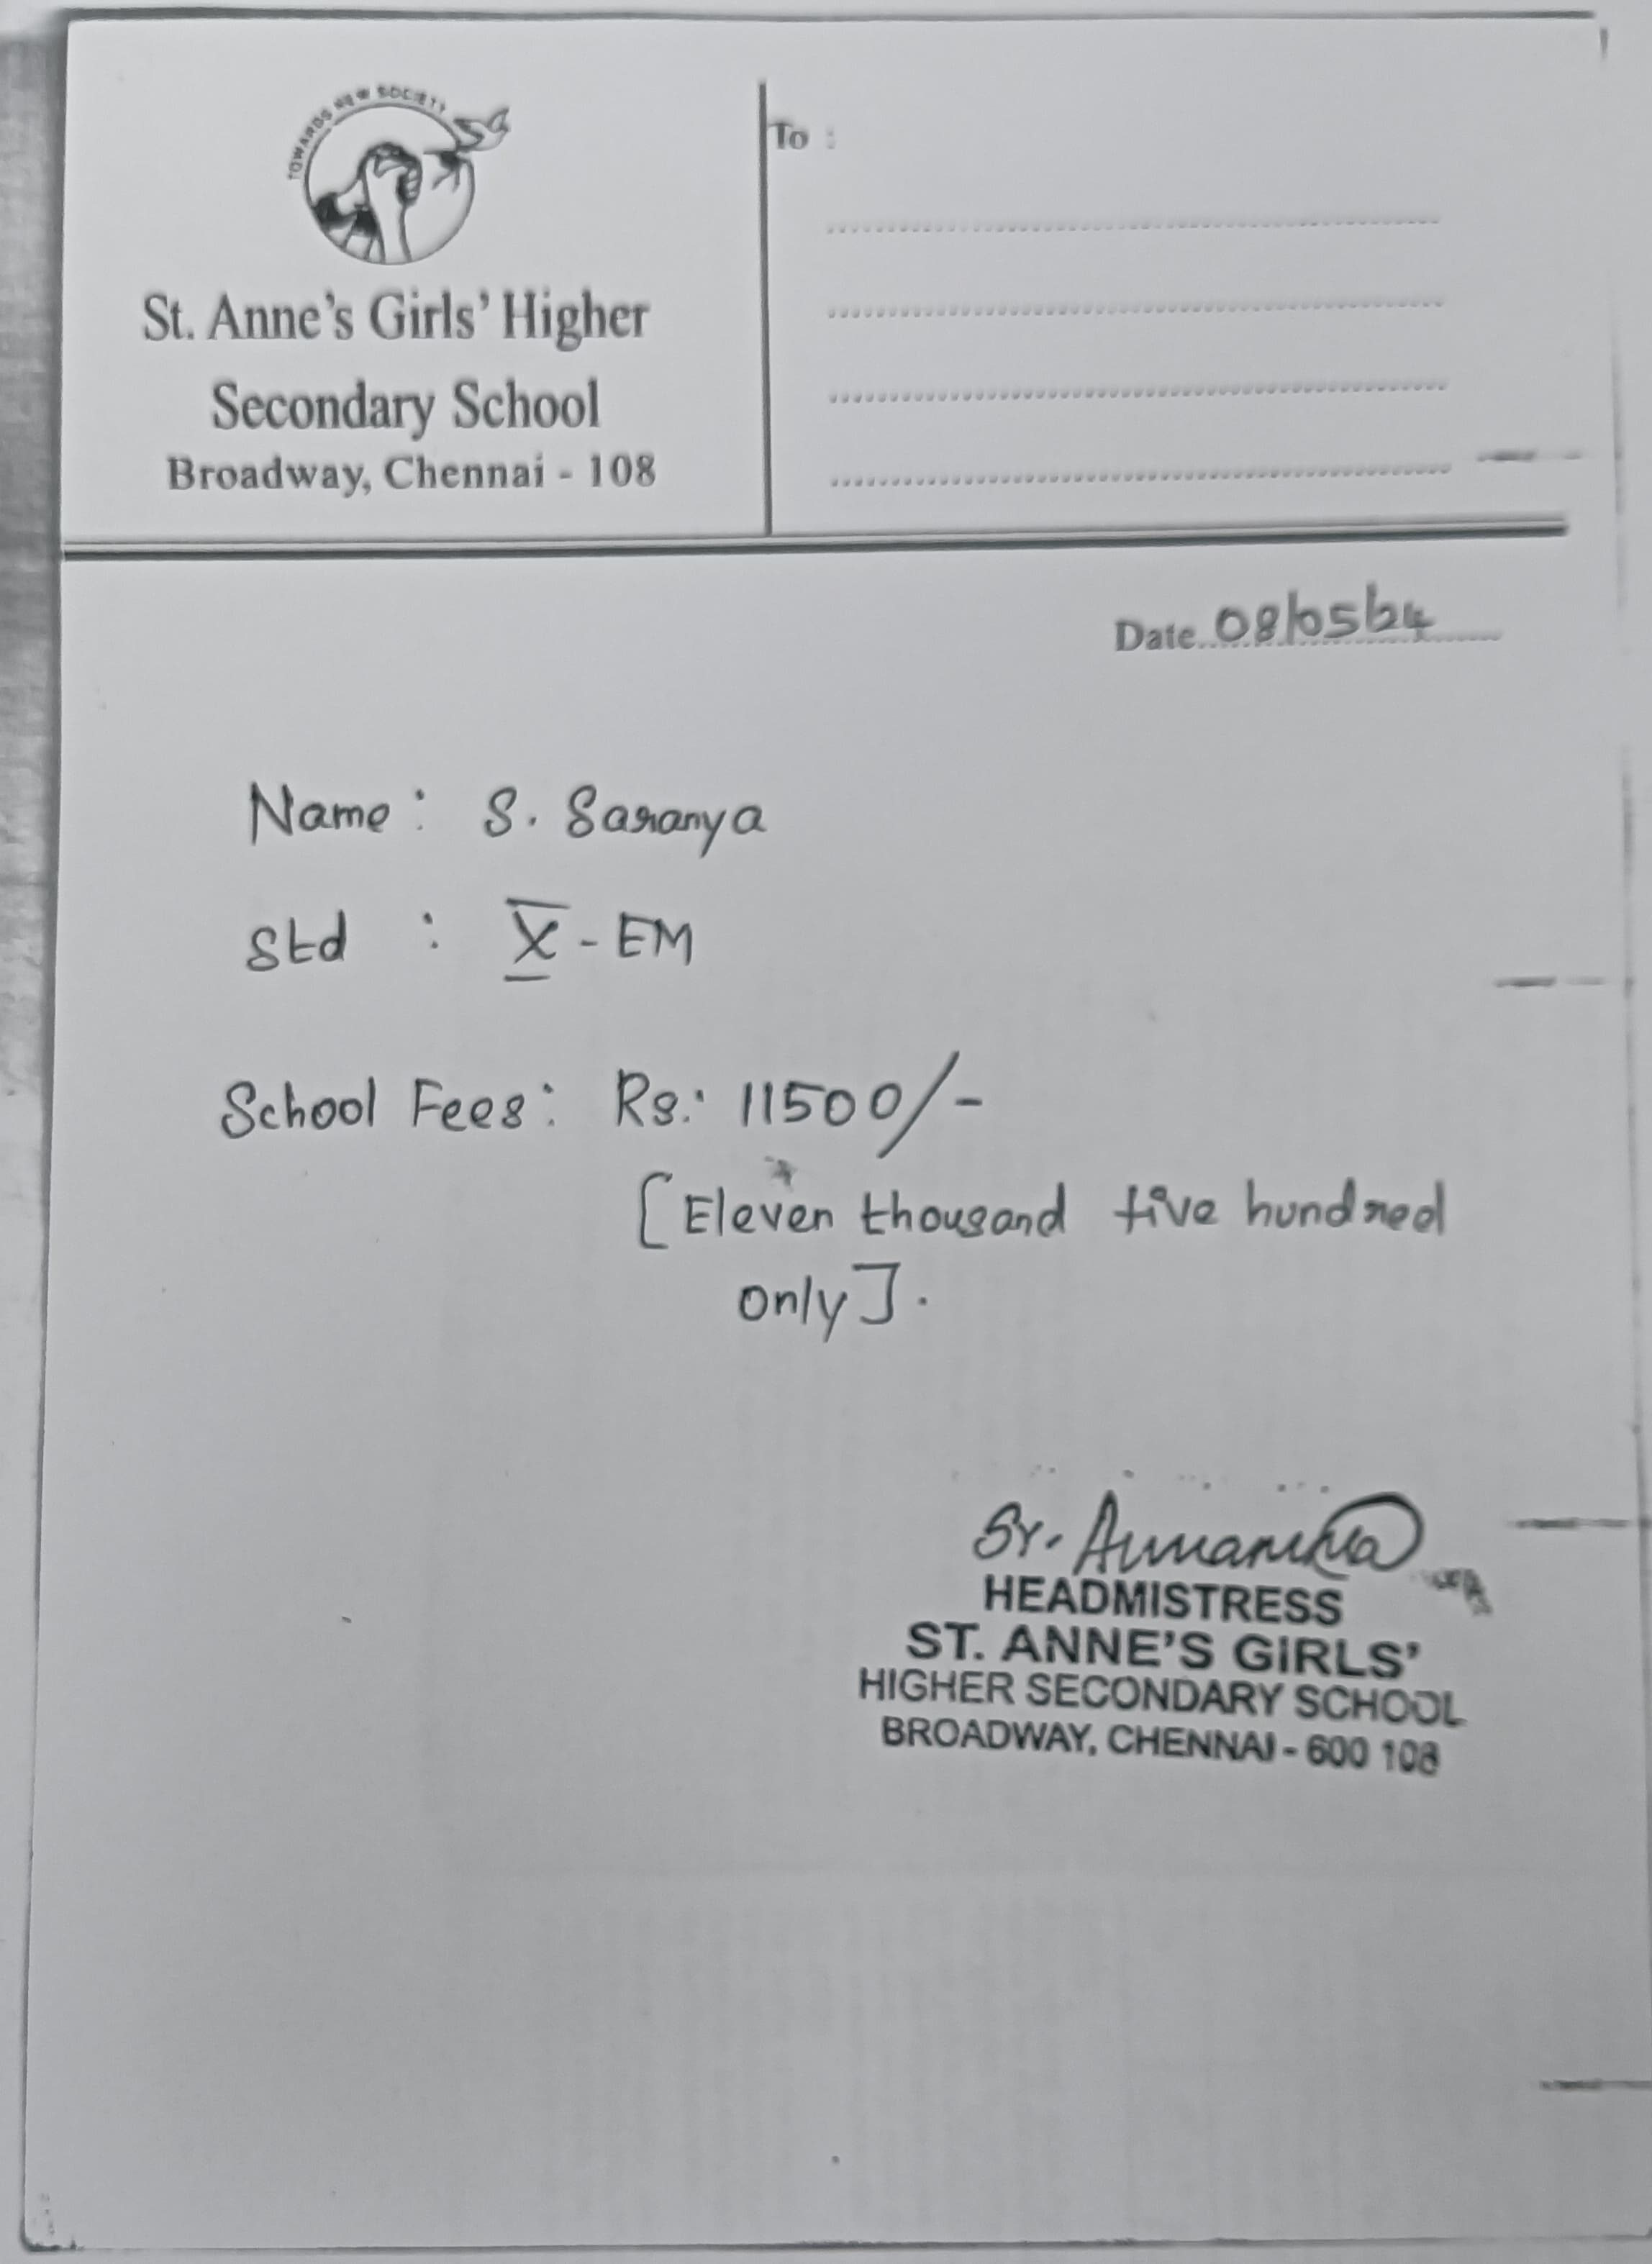 TOWARDS NEW SOCIETY
St. Anne's Girls' Higher
Secondary School
Broadway, Chennai - 108
To :
Date 08/05/24
Name : S. Saranya
Std : X - EM
School Fees : Rs.: 11500/-
[Eleven thousand five hundred
only].
Sr.
HEADMISTRESS
ST. ANNE'S GIRLS'
HIGHER SECONDARY SCHOOL
BROADWAY, CHENNAI - 600 108